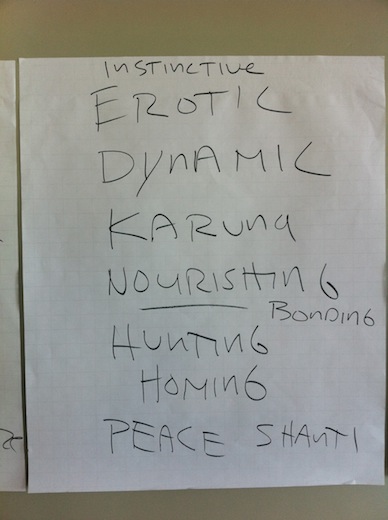 INSTINCTIVE
EROTIC
DYNAMIC
KARUNA
NOURISHING
BONDING
HUNTING
HOMING
PEACE SHANTI